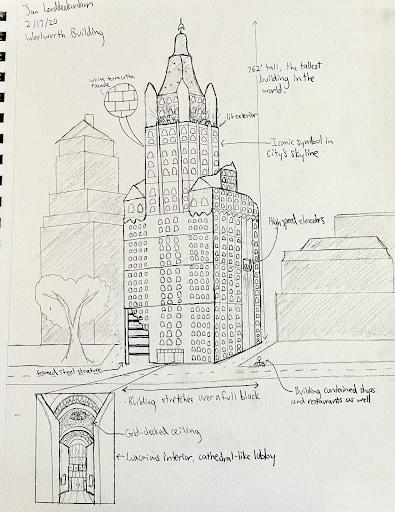 Jan
2/17/20
Woolworth Building
white terracotta
facade
762' tall, the tallest
building in the
world.
lit exterior
Iconic symbol in
City's skyline.
High speed elevators
framed steel structure
Building stretches over a full block
Building contained shops
and restaurants as well
Gold-decked ceiling
Luxurious interior, cathedral-like lobby